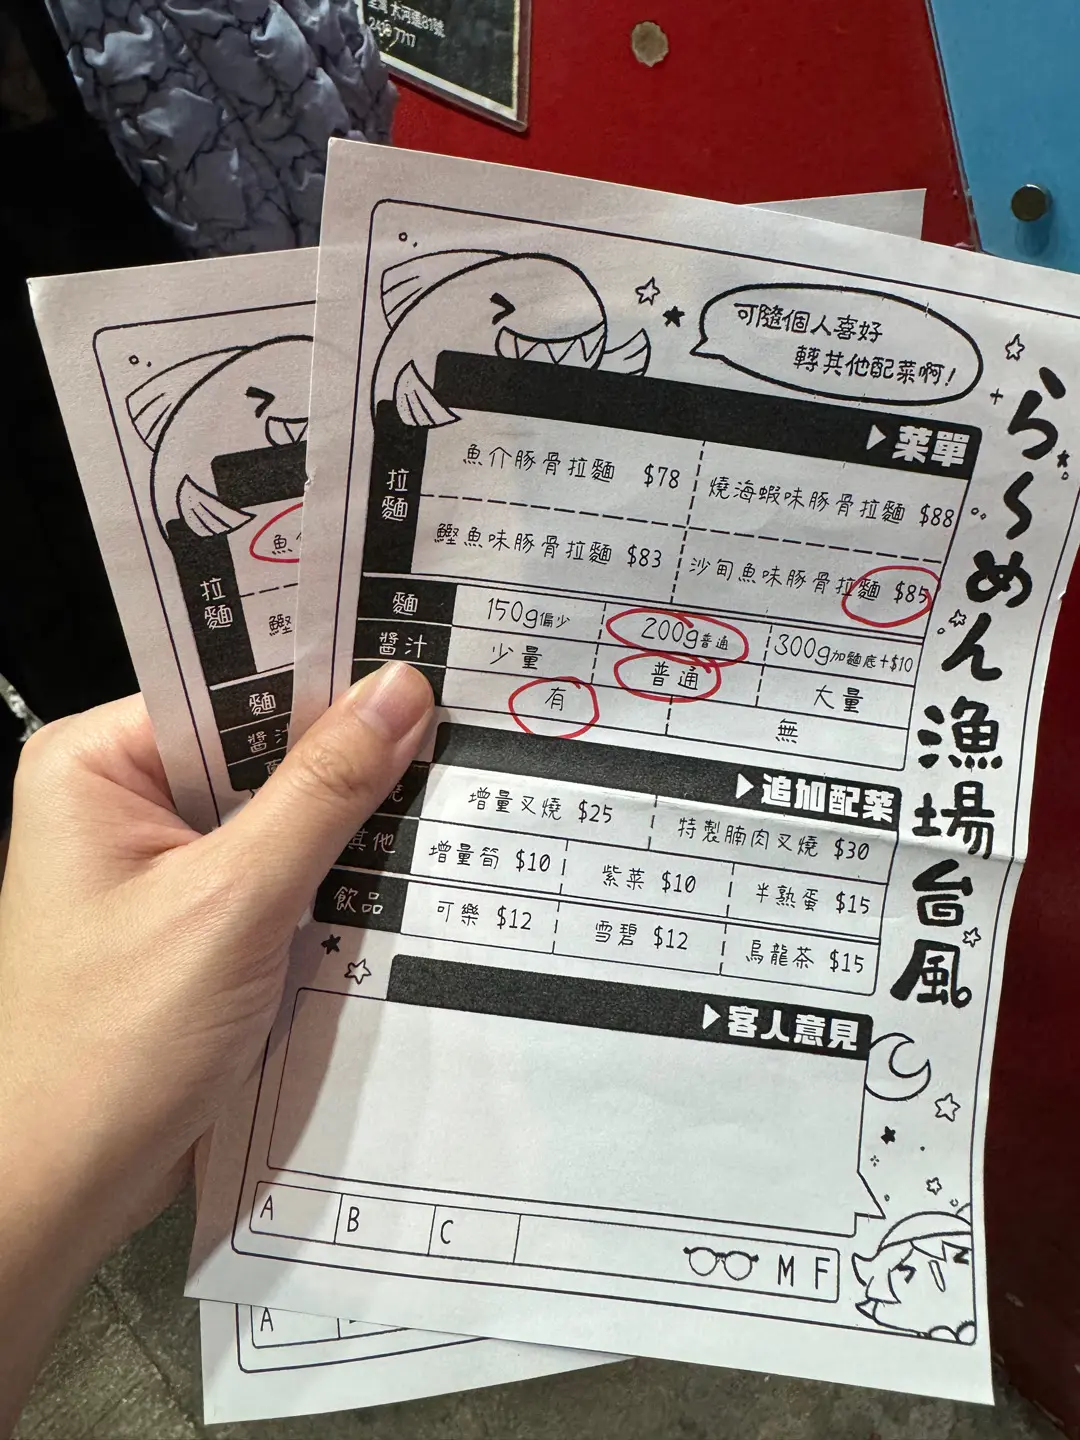 大河道81號
2418 7717
可隨個人喜好
轉其他配菜啊！
らーめん漁場台風
▶菜單
拉麵
魚介豚骨拉麵 $78
燒海蝦味豚骨拉麵 $88
鰹魚味豚骨拉麵 $83
沙甸魚味豚骨拉麵 $85
麵
150g偏少
200g普通
300g加麵底+$10
醬汁
少量
普通
大量
有
無
▶追加配菜
增量叉燒 $25
特製腩肉叉燒 $30
其他
增量筍 $10
紫菜 $10
半熟蛋 $15
飲品
可樂 $12
雪碧 $12
烏龍茶 $15
▶客人意見
A
B
C
M F
拉麵
魚
鰹
麵
醬汁
A